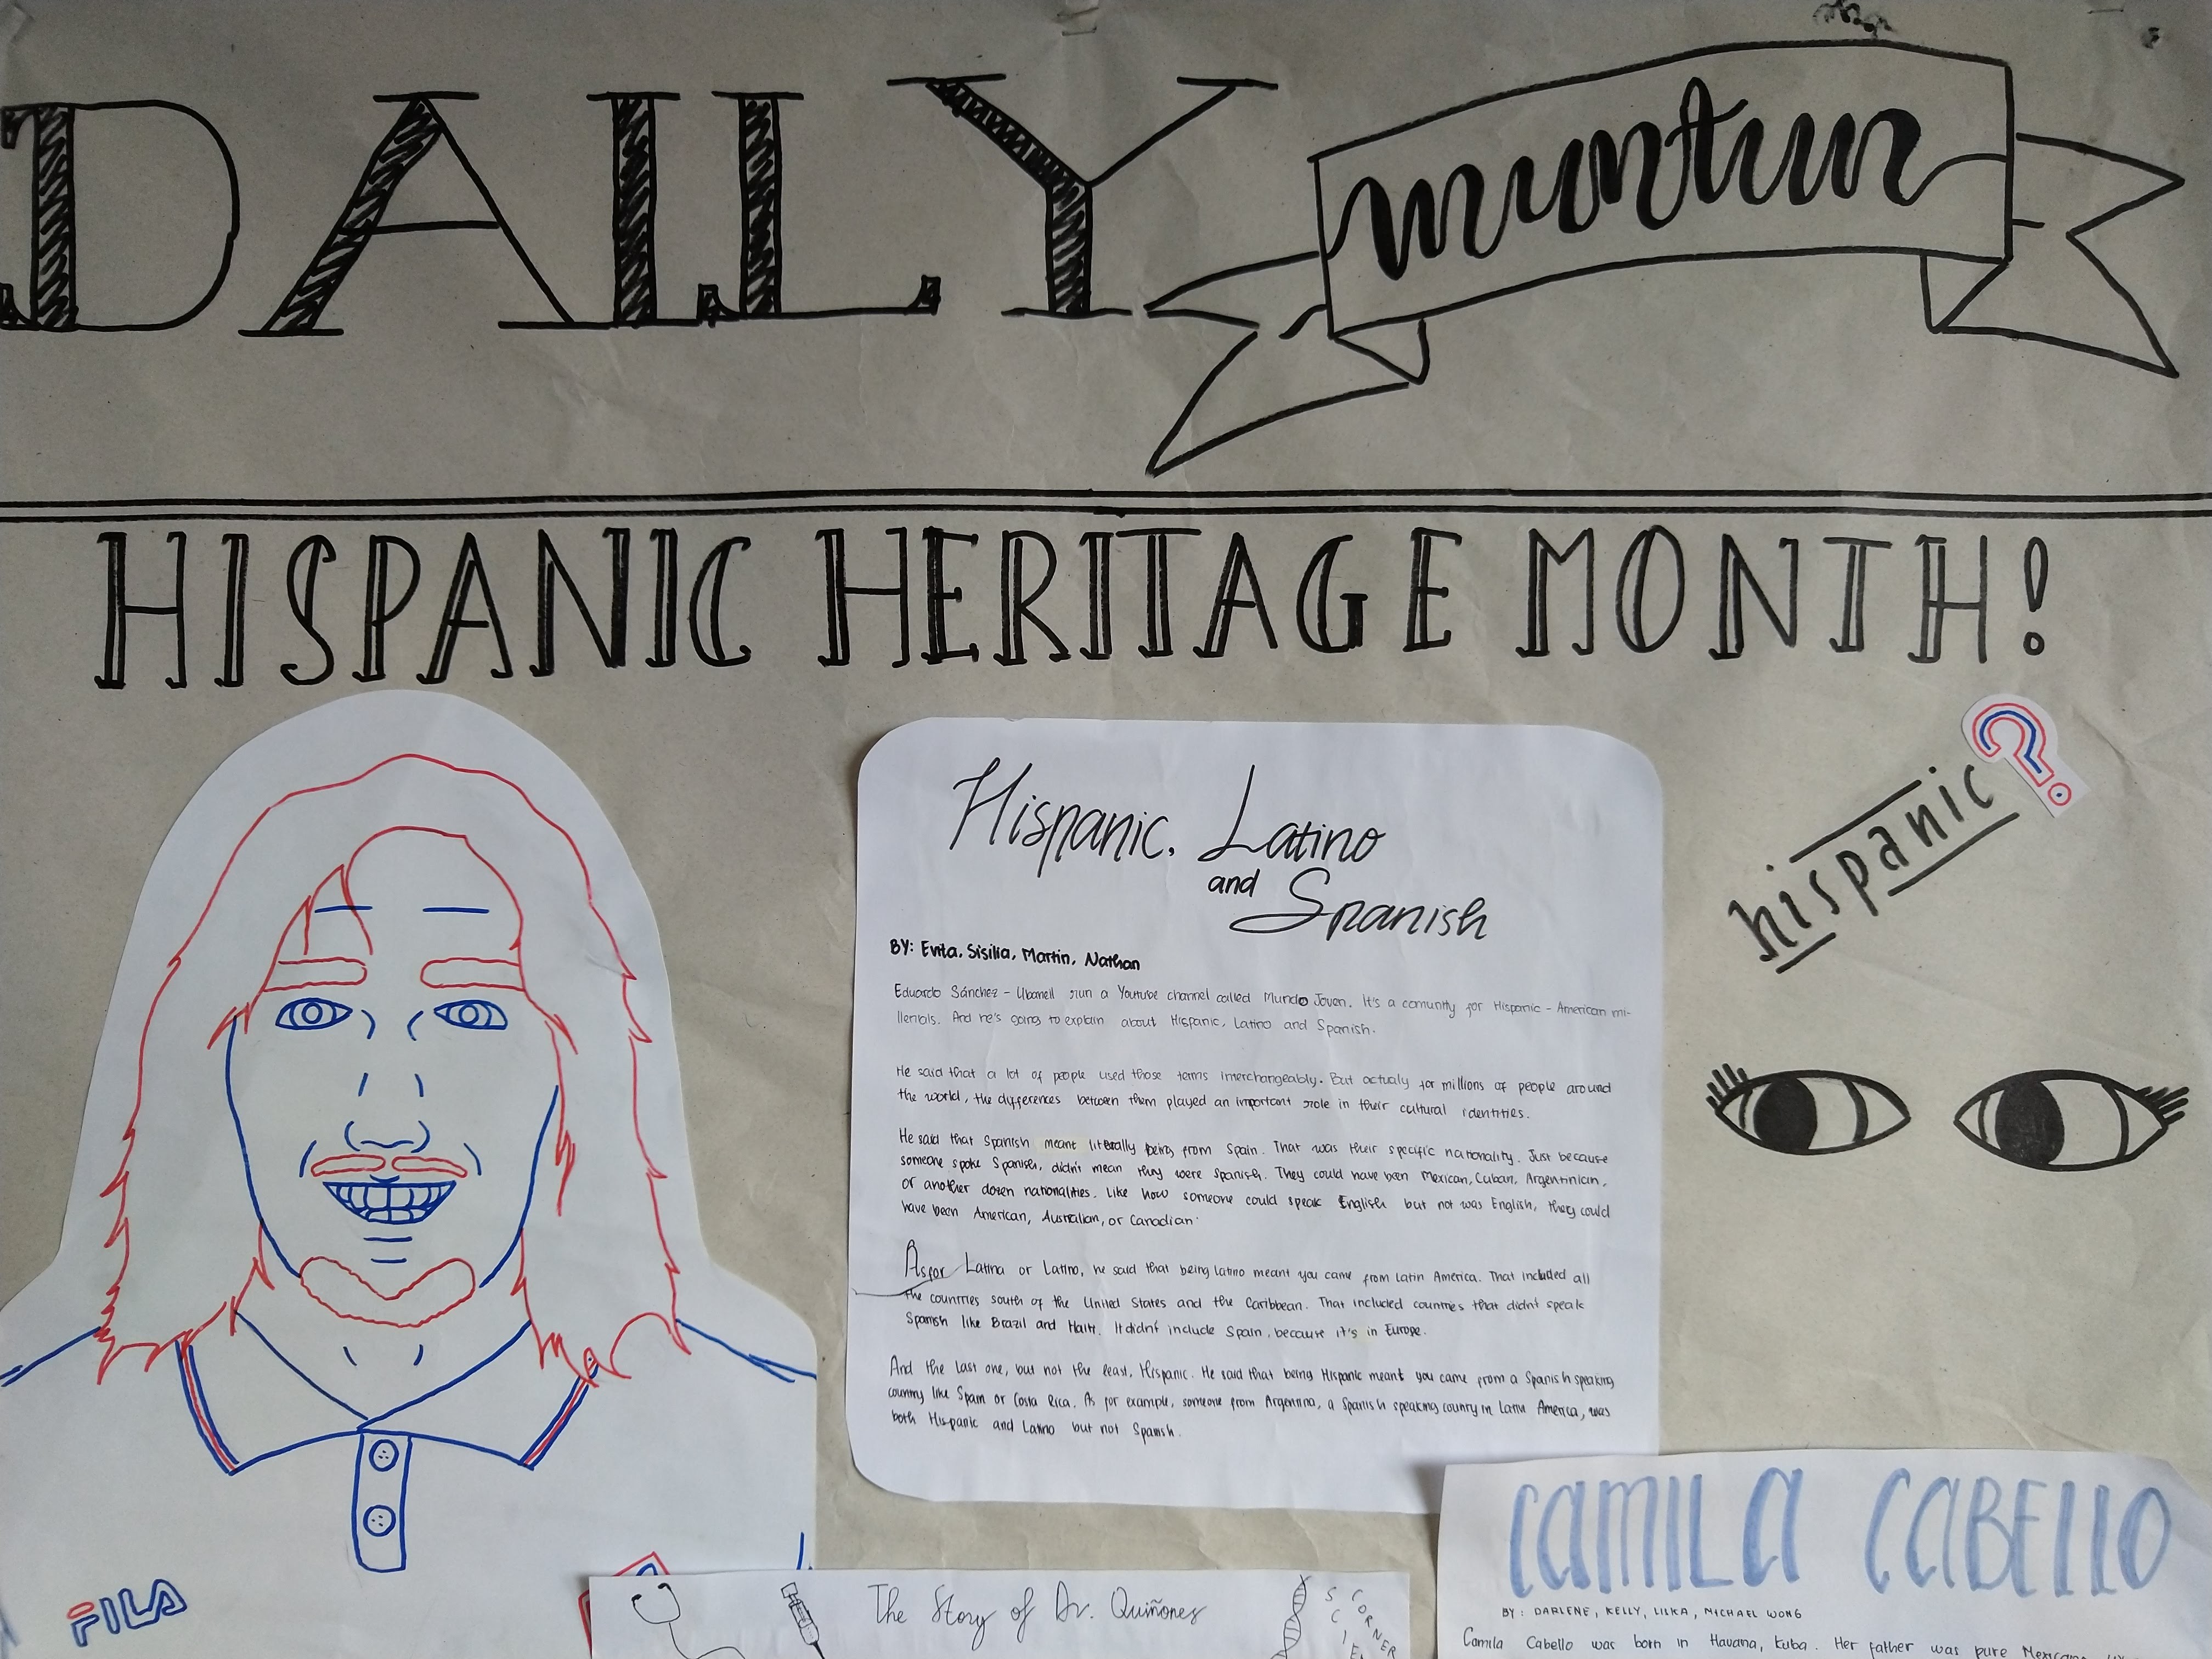 DAILY muntun
HISPANIC HERITAGE MONTH!
hispanic?
Hispanic, Latino
and Spanish
BY: Evita, Sisilia, Martin, Nathan
Eduardo Sánchez - Ubanell run a Youtube channel called Mundo Joven. It's a comunity for Hispanic - American mi-
llenials. And he's going to explain about Hispanic, Latino and Spanish.
He said that a lot of people used those terms interchangeably. But actualy for millions of people around
the world, the differences between them played an important role in their cultural identities.
He said that Spanish meant literally being from Spain. That was their specific nationality. Just because
someone spoke Spanish, didn't mean they were Spanish. They could have been Mexican, Cuban, Argentinian,
or another dozen nationalities. Like how someone could speak English but not was English, they could
have been American, Australian, or Canadian.
As for Latina or Latino, he said that being latino meant you came from Latin America. That included all
the countries south of the United States and the Caribbean. That included countries that didn't speak
Spanish like Brazil and Haiti. It didn't include Spain, because it's in Europe.
And the last one, but not the least, Hispanic. He said that being Hispanic meant you came from a Spanish speaking
country like Spain or Costa Rica. As for example, someone from Argentina, a Spanish speaking country in Latin America, was
both Hispanic and Latino but not Spanish.
FILA
The Story of Dr. Quiñones
SCIEN
CORNER
CAMILA CABELLO
BY: DARLENE, KELLY, LILKA, MICHAEL WONG
Camila Cabello was born in Havana, Kuba. Her father was pure Mexicano